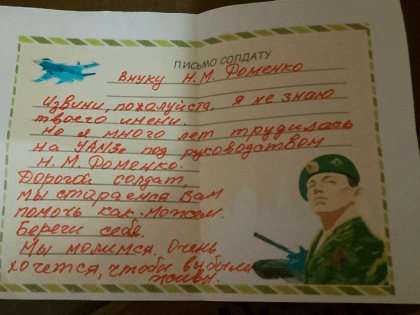 ПИСЬМО СОЛДАТУ
Внуку Н.М. Фоменко
Извини, пожалуйста, я не знаю
твоего имени.
Но я много лет трудилась
на УАНЗе под руководством
Н.М. Фоменко.
Дорогой солдат,
мы стараемся Вам
помочь как можем.
Береги себя.
Мы молимся. Очень
хочется, чтобы вы были
живы.